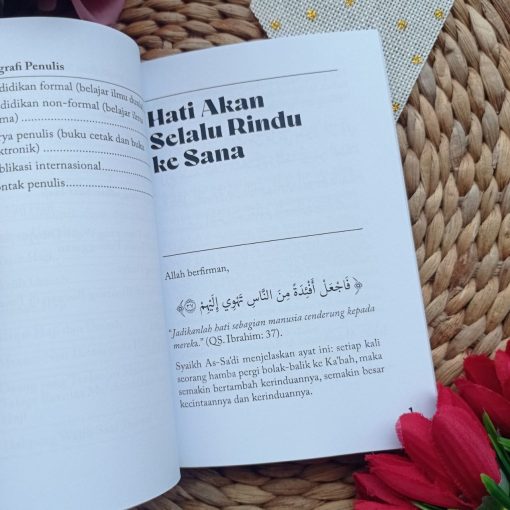 grafi Penulis
didikan formal (belajar ilmu dunia)
didikan non-formal (belajar ilmu
ma)
rya penulis (buku cetak dan buku
ktronik)
blikasi internasional
ontak penulis
Hati Akan
Selalu Rindu
ke Sana
Allah berfirman,
﴿ فَاجْعَلْ أَفْئِدَةً مِنَ النَّاسِ تَهْوِي إِلَيْهِمْ ۝٣٧ ﴾
"Jadikanlah hati sebagian manusia cenderung kepada
mereka." (QS. Ibrahim: 37).
Syaikh As-Sa'di menjelaskan ayat ini: setiap kali
seorang hamba pergi bolak-balik ke Ka'bah, maka
semakin bertambah kerinduannya, semakin besar
kecintaannya dan kerinduannya.